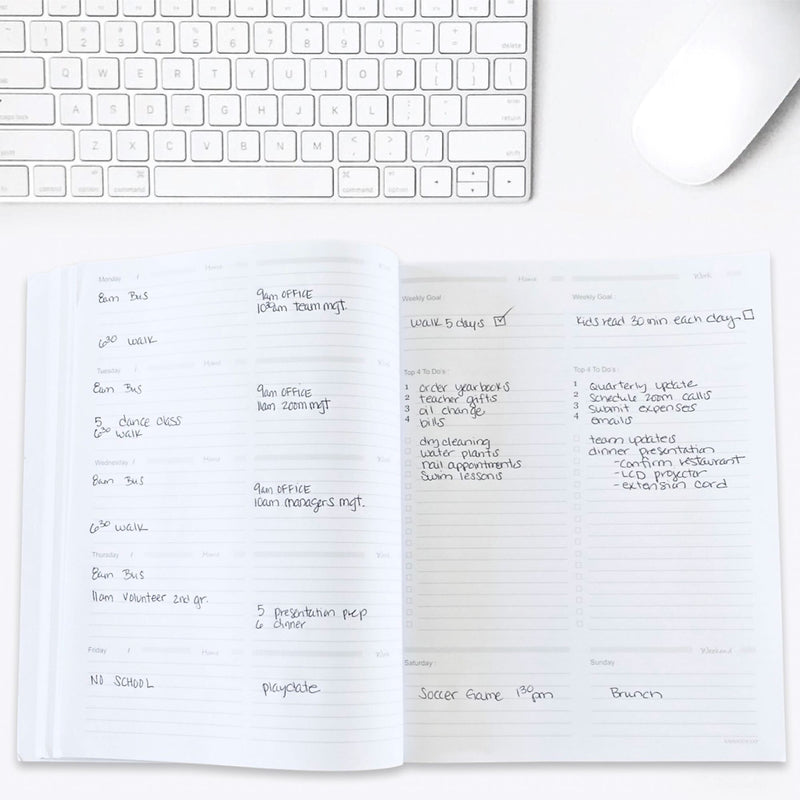 ~ ! @ # $ % ^ & * ( ) _ +
1 2 3 4 5 6 7 8 9 0 - = delete
Q W E R T Y U I O P { } |
[ ] \
caps lock A S D F G H J K L : " enter
; ' return
Z X C V B N M < > ? shift
, . /
control option command command option
Monday / Home Work
8am Bus
9am OFFICE
10:30am team mgt.
6:30 walk
Tuesday / Home Work
8am Bus
9am OFFICE
11am zoom mgt
5 dance class
6:30 walk
Wednesday / Home Work
8am Bus
9am OFFICE
10am managers mgt.
6:30 walk
Thursday / Home Work
8am Bus
11am Volunteer 2nd gr.
5 presentation prep
6 dinner
Friday / Home Work
NO SCHOOL
playdate
Home
Weekly Goal
walk 5 days
Top 4 To Do's:
1 order yearbooks
2 teacher gifts
3 oil change
4 bills
dry cleaning
water plants
nail appointments
Swim lessons
Saturday:
Soccer Game 1:30pm
Work
Weekly Goal
Kids read 30 min each day
Top 4 To Do's:
1 Quarterly update
2 Schedule zoom calls
3 Submit expenses
4 emails
team updates
dinner presentation
-confirm restaurant
-LCD projector
-extension cord
Weekend
Sunday
Brunch